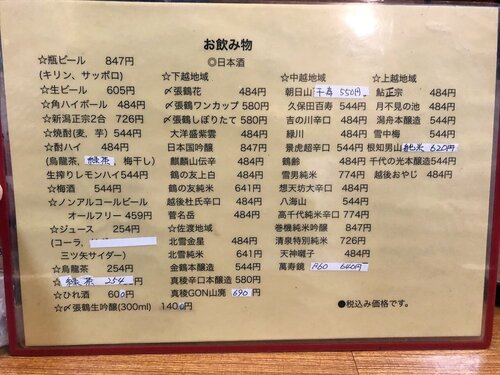 お飲み物
☆瓶ビール 847円
(キリン、サッポロ)
☆生ビール 605円
☆角ハイボール 484円
☆新潟正宗2合 726円
☆焼酎(麦、芋) 544円
☆酎ハイ 484円
(烏龍茶、緑茶、梅干し)
生搾りレモンハイ544円
☆梅酒 544円
☆ノンアルコールビール
オールフリー 459円
☆ジュース 254円
(コーラ、
三ツ矢サイダー)
☆烏龍茶 254円
☆緑茶 254円
☆ひれ酒 600円
☆〆張鶴生吟醸(300ml) 1400円
◎日本酒
☆下越地域
〆張鶴花 484円
〆張鶴ワンカップ 580円
〆張鶴しぼりたて 580円
大洋盛紫雲 484円
日本国吟醸 847円
麒麟山伝辛 484円
鶴の友上白 484円
鶴の友純米 641円
越後杜氏辛口 484円
菅名岳 484円
☆佐渡地域
北雪金星 484円
北雪純米 641円
金鶴本醸造 544円
真稜辛口本醸造 580円
真稜GON山廃 690円
☆中越地域
朝日山 千寿 550円
久保田百寿 544円
吉の川辛口 484円
緑川 484円
景虎超辛口 544円
鶴齢 484円
雪男純米 774円
想天坊大辛口 484円
八海山 544円
高千代純米辛口 774円
巻機純米吟醸 847円
清泉特別純米 774円
天神囃子 484円
萬寿鏡 F60 640円
☆上越地域
鮎正宗 484円
月不見の池 484円
潟舟本醸造 544円
雪中梅 544円
根知男山 純米 620円
千代の光本醸造 544円
越後おやじ 484円
●税込み価格です。